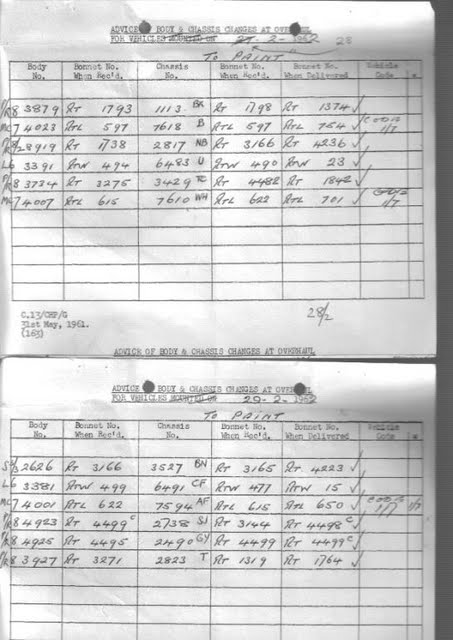 ADVICE OF BODY & CHASSIS CHANGES AT OVERHAUL
FOR VEHICLES MOUNTED ON 27-2-1962 28
TO PAINT
Body No. Bonnet No. When Rec'd. Chassis No. Bonnet No. When Rec'd. Bonnet No. When Delivered Vehicle Code
P/R8 3879 RT 1793 1113 BK RT 1798 RT 1374 ✓
MC7 4023 RTL 597 7618 B RTL 597 RTL 754 ✓ 1/7
8919 RT 1738 2817 NB RT 3166 RT 4236 ✓
L6 3391 RTW 494 6483 U RTW 490 RTW 23 ✓
P/R8 3734 RT 3275 3429 TC RT 4482 RT 1842 ✓
MC7 4007 RTL 615 7610 WH RTL 622 RTL 701 ✓ 1/7
C.13/CHP/G
31st May, 1961.
(163)
28/2
ADVICE OF BODY & CHASSIS CHANGES AT OVERHAUL
ADVICE OF BODY & CHASSIS CHANGES AT OVERHAUL
FOR VEHICLES MOUNTED ON 29-2-1962
TO PAINT
Body No. Bonnet No. When Rec'd. Chassis No. Bonnet No. When Rec'd. Bonnet No. When Delivered Vehicle Code
2626 RT 3166 3527 BN RT 3165 RT 4223 ✓
L6 3381 RTW 499 6491 CF RTW 477 RTW 15 ✓
MC7 4001 RTL 622 7594 AF RTL 615 RTL 650 ✓ 1/7
P/R8 4923 RT 4499c 2738 SJ RT 3144 RT 4498c ✓
P/R8 4925 RT 4495 2490 GY RT 4499 RT 4499c ✓
P/R8 3927 RT 3271 2823 T RT 1319 RT 1764 ✓